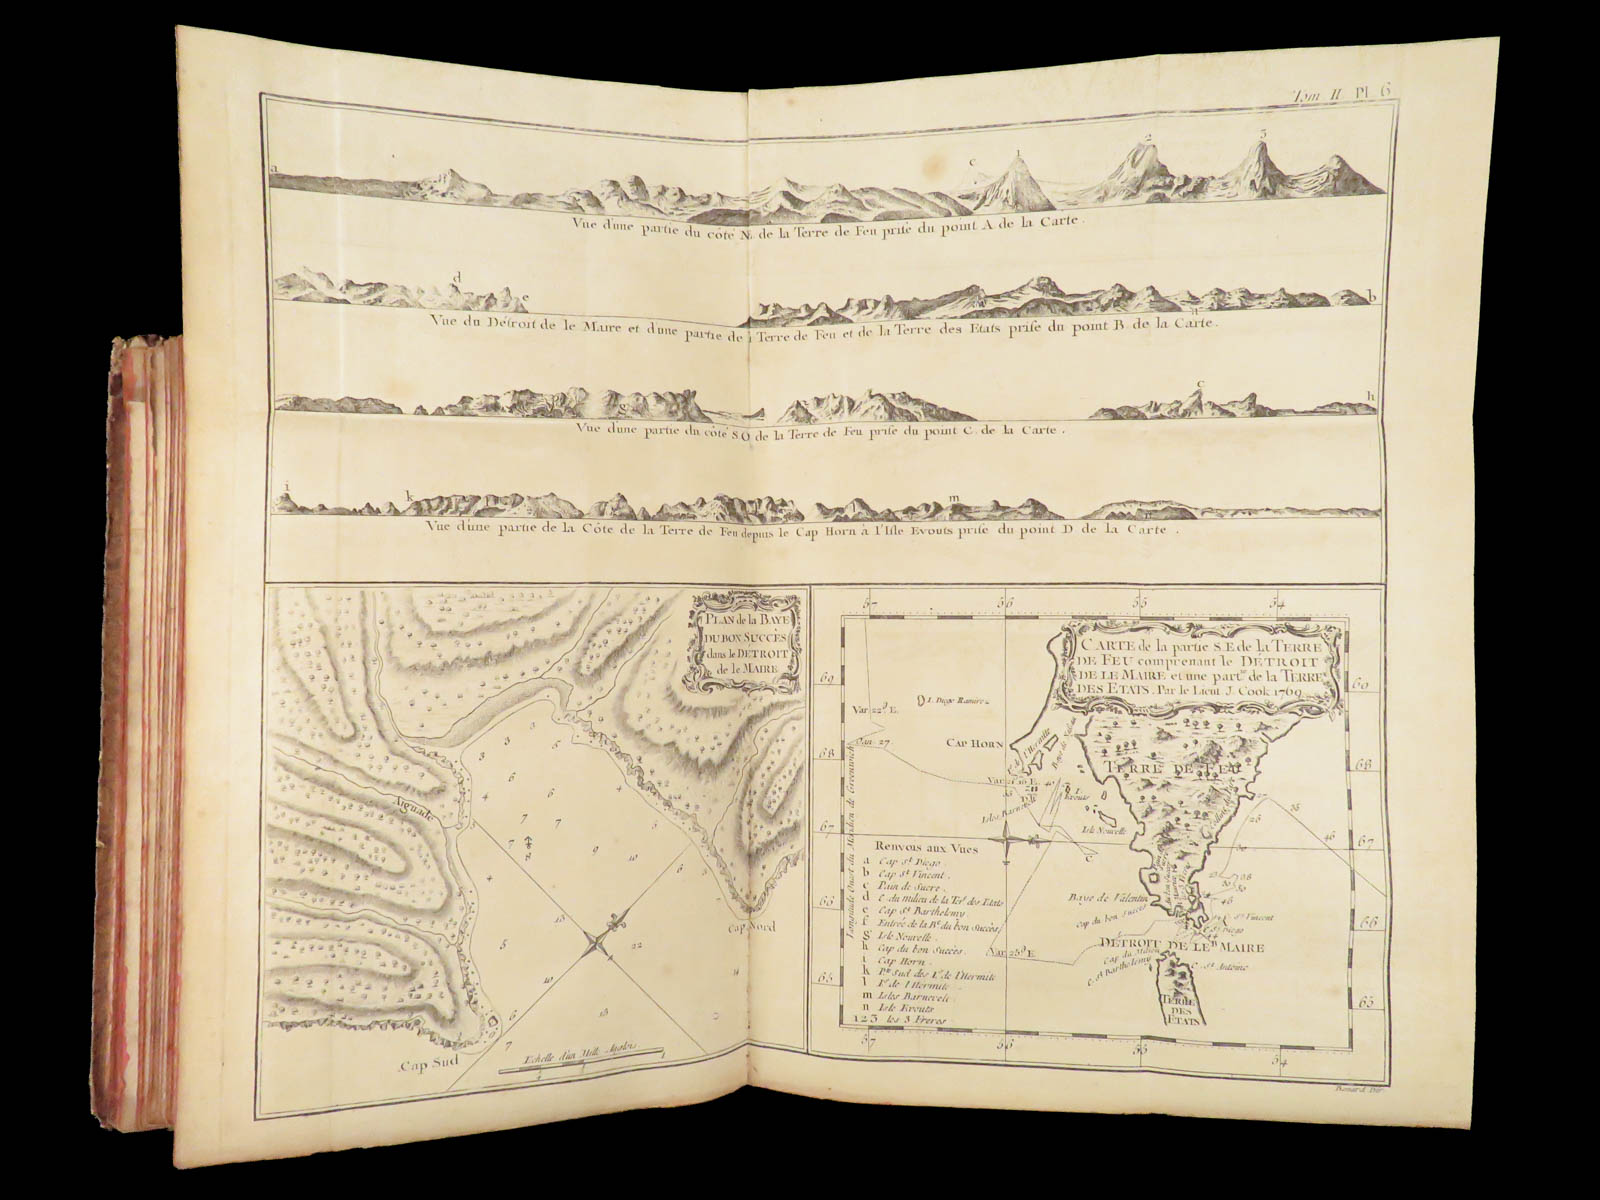 Tom II. Pl. 6
a
c
1
2
3
Vue d'une partie du côté N. de la Terre de Feu prise du point A de la Carte.
d
e
n
b
Vue du Détroit de le Maire et d'une partie de Terre de Feu et de la Terre des Etats prise du point B. de la Carte.
g
c
h
Vue d'une partie du côté S.O de la Terre de Feu prise du point C. de la Carte.
i
k
m
n
Vue d'une partie de la Côte de la Terre de Feu depuis le Cap Horn à l'Isle Evouts prise du point D de la Carte.
PLAN de la BAYE
DU BON SUCCÈS
dans le DETROIT
de le MAIRE
Aiguade
Cap Nord
Cap Sud
Echelle d'un Mille Anglois
57
56
55
54
CARTE de la partie S.E de la TERRE
DE FEU comprenant le DÉTROIT
DE LE MAIRE et une part.ie de la TERRE
DES ETATS. Par le Lieut J. Cook 1769
69
69
I. Diego Ramirez
Var 22.d E.
Jan. 27
CAP HORN
I. de l'Hermite
Baye de Nassau
68
68
TERRE DE FEU
I. Evouts
Isles Barnevelt
Isle Nouvelle
67
67
Longitude Ouest du Meridien de Greenwich
Renvois aux Vues
a Cap St Diego
b Cap St Vincent.
c Pain de Sucre.
d C. du milieu de la Ter. des Etats
e Cap St Barthelemy.
f Entrée de la B.e du bon Succès
g Isle Nouvelle.
h Cap du bon Succès.
i Cap Horn.
k P.te Sud des I.s de l'Hermite
l I.s de l'Hermite
m Isles Barnevelt
n Isle Evouts
1 2 3 les 3 Freres
Baye de Valentin
Cap du bon Succès
C. St Vincent
C. St Diego
66
66
DÉTROIT DE LE MAIRE
Var 25.d E.
Cap du Milieu
C. St Barthelemy
C. St Antoine
65
65
TERRE
DES
ETATS
57
56
55
54
Benard Dir.